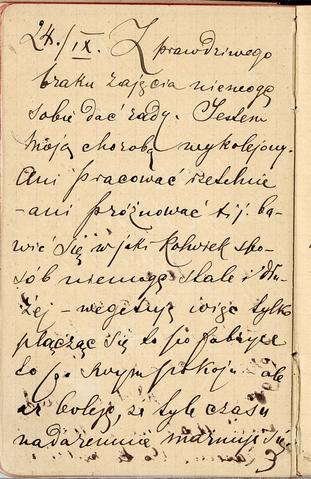 24./IX. Z prawdziwego
braku zajęcia niemogę
sobie dać rady. Jestem
moją chorobą wykolejony.
Ani pracować rzetelnie
- ani próżnować t.j. ba-
wić się w jaki kolwiek spo-
sób niemogę stale i dłu-
żej - wegetuję więc tylko
plącząc się to po fabryce
to po swym pokoju - ale
aż boleję, że tyle czasu
nadaremnie marnuje się